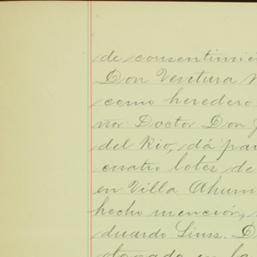 de consentimien
Don Ventura
como heredero
ñor Doctor Don J
del Rio, dá par
cuatro lotes de
en Villa Ahum
hecho mención,
duardo Linss. D